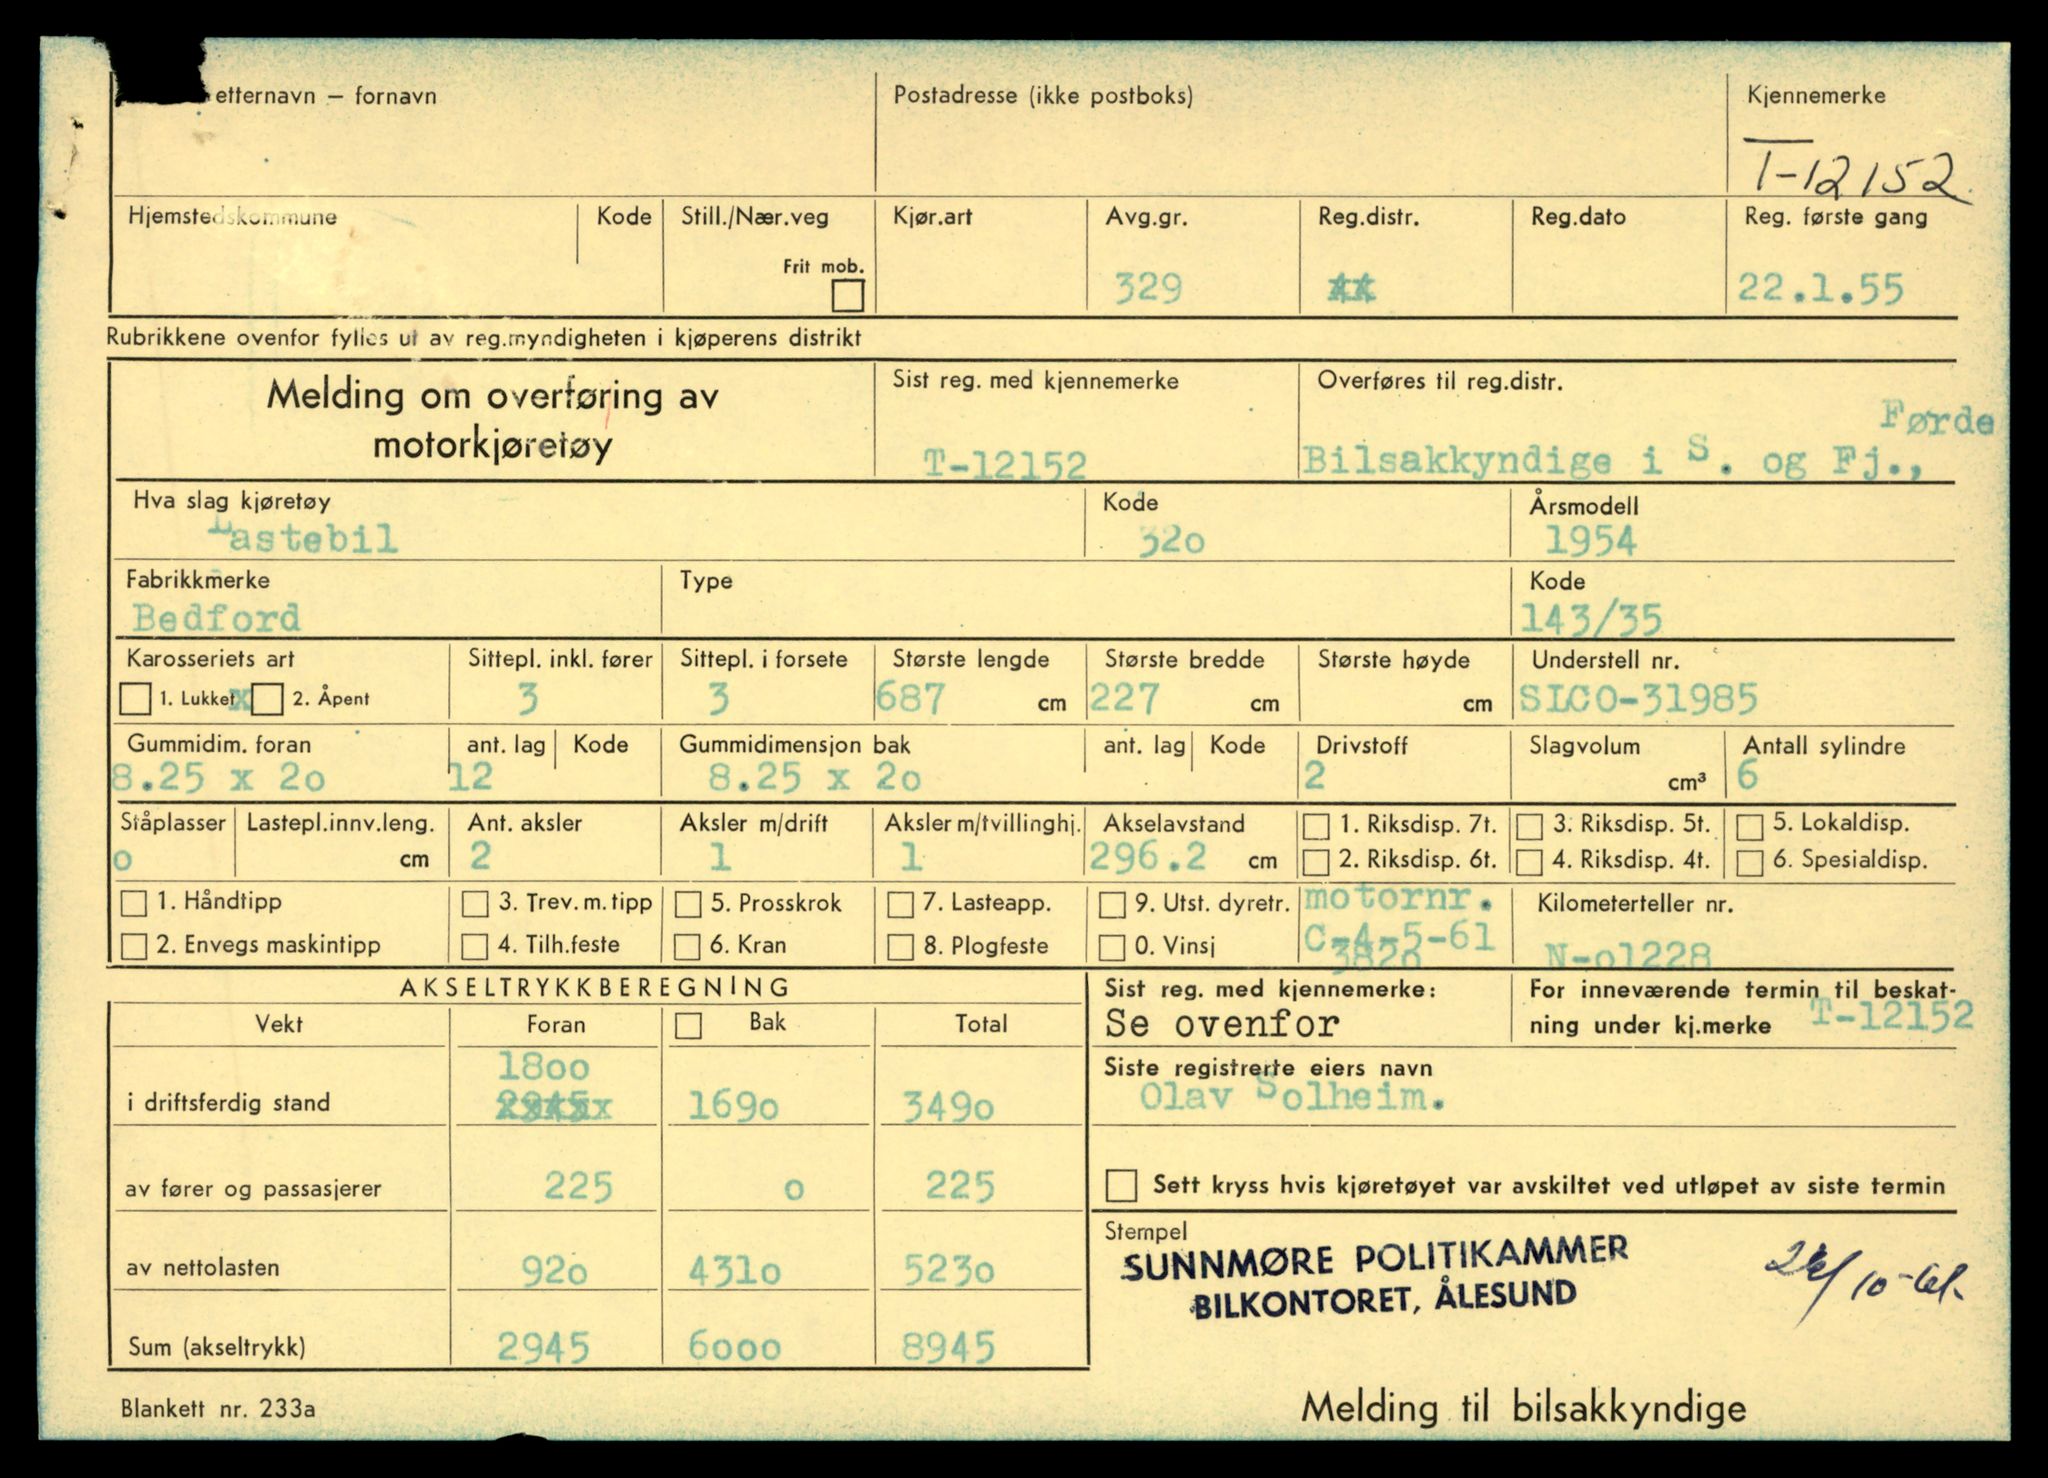 etternavn – fornavn Postadresse (ikke postboks) Kjennemerke
T-12152
Hjemstedskommune Kode Still./Nær.veg Kjør.art Avg.gr. Reg.distr. Reg.dato Reg. første gang
Frit mob.
329 22.1.55
Rubrikkene ovenfor fylles ut av reg.myndigheten i kjøperens distrikt
Melding om overføring av
motorkjøretøy
Sist reg. med kjennemerke Overføres til reg.distr.
T-12152 Bilsakkyndige i S. og Fj., Førde
Hva slag kjøretøy Kode Årsmodell
Lastebil 32o 1954
Fabrikkmerke Type Kode
Bedford 143/35
Karosseriets art Sittepl. inkl. fører Sittepl. i forsete Største lengde Største bredde Største høyde Understell nr.
1. Lukket x 2. Åpent 3 3 687 cm 227 cm cm SLCO-31985
Gummidim. foran ant. lag Kode Gummidimensjon bak ant. lag Kode Drivstoff Slagvolum Antall sylindre
8.25 x 2o 12 8.25 x 2o 2 cm³ 6
Ståplasser Lastepl.innv.leng. Ant. aksler Aksler m/drift Aksler m/tvillinghj. Akselavstand 1. Riksdisp. 7t. 3. Riksdisp. 5t. 5. Lokaldisp.
o cm 2 1 1 296.2 cm 2. Riksdisp. 6t. 4. Riksdisp. 4t. 6. Spesialdisp.
1. Håndtipp 3. Trev. m. tipp 5. Prosskrok 7. Lasteapp. 9. Utst. dyretr. motornr. Kilometerteller nr.
2. Envegs maskintipp 4. Tilh.feste 6. Kran 8. Plogfeste 0. Vinsj C-4-5-61
382o N-o1228
AKSELTRYKKBEREGNING
Vekt Foran Bak Total
1800
i driftsferdig stand 2945 169o 349o
av fører og passasjerer 225 o 225
av nettolasten 92o 431o 523o
Sum (akseltrykk) 2945 6ooo 8945
Sist reg. med kjennemerke: For inneværende termin til beskat-
Se ovenfor ning under kj.merke T-12152
Siste registrerte eiers navn
Olav Solheim.
Sett kryss hvis kjøretøyet var avskiltet ved utløpet av siste termin
Stempel
SUNNMØRE POLITIKAMMER
BILKONTORET, ÅLESUND
Blankett nr. 233a Melding til bilsakkyndige